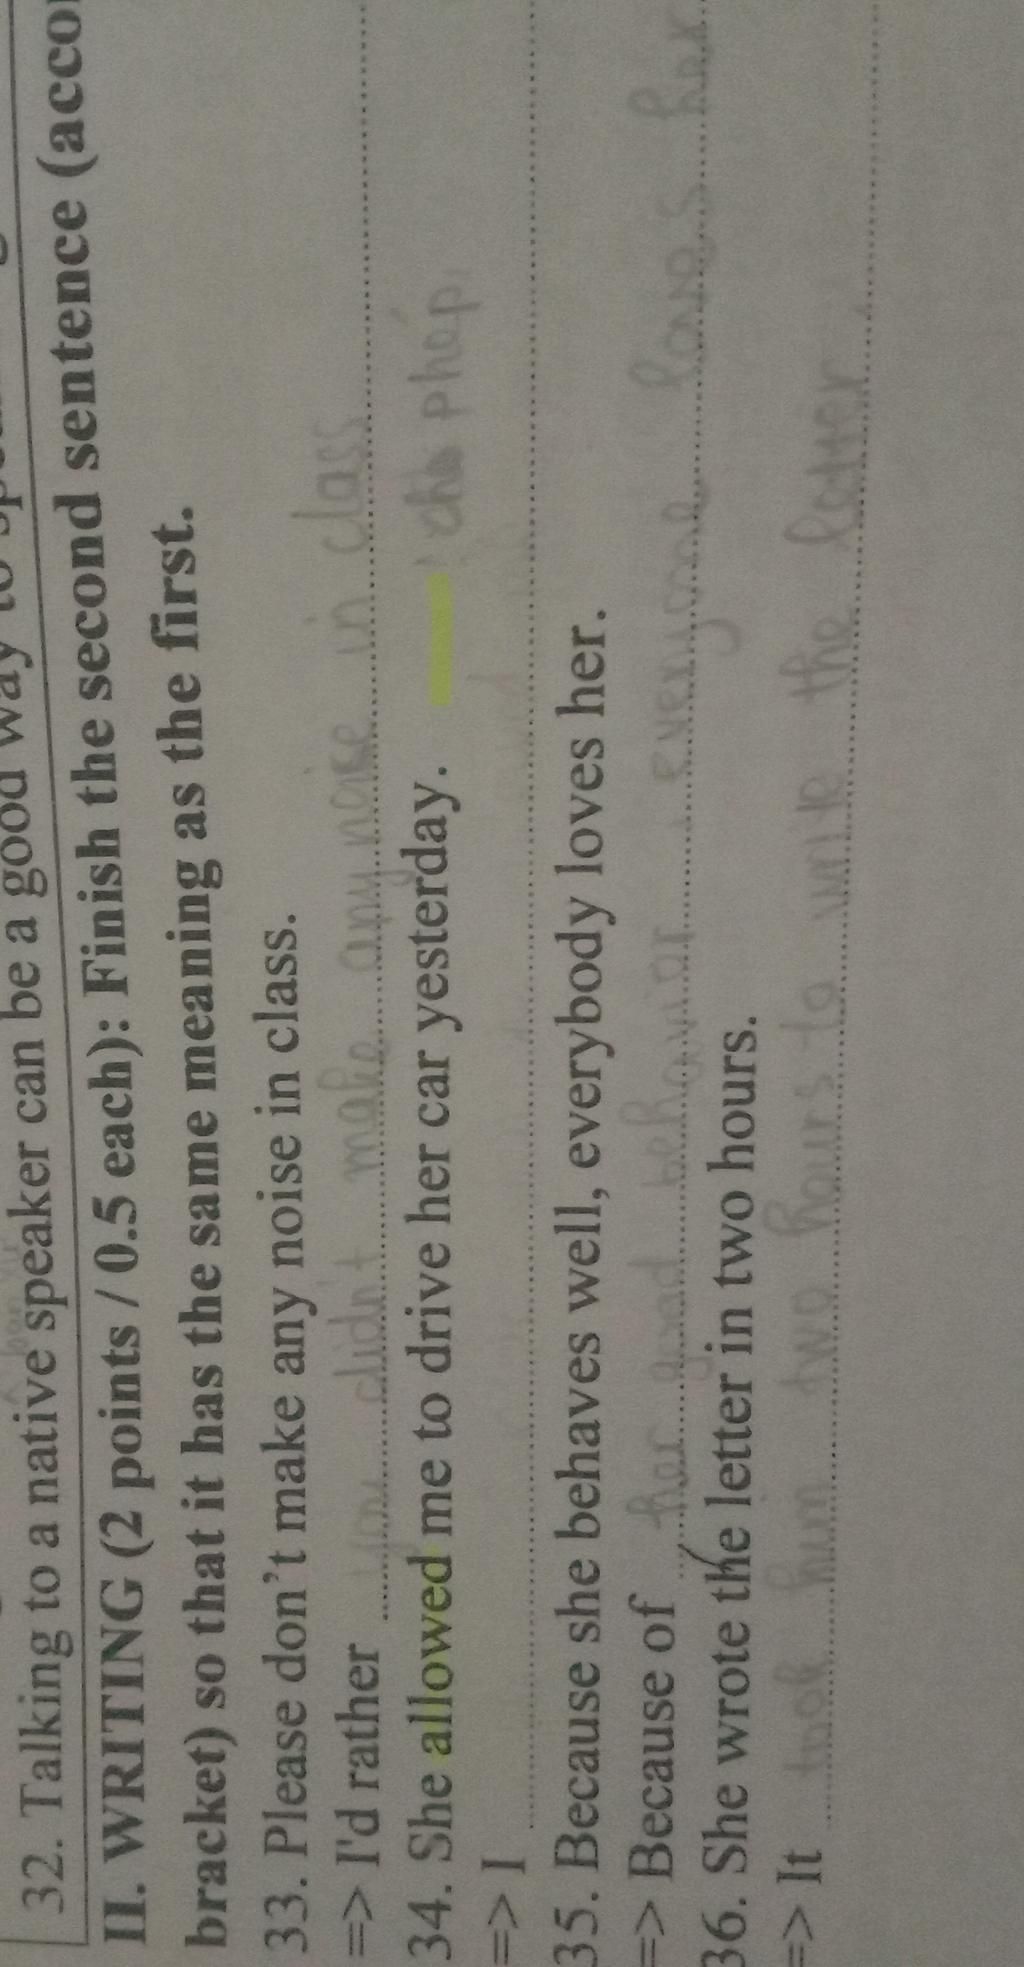 32. Talking to a native speaker can be a good way to
II. WRITING (2 points / 0.5 each): Finish the second sentence (acco
bracket) so that it has the same meaning as the first.
33. Please don't make any noise in class.
=> I'd rather you didn't make any noise in class
34. She allowed me to drive her car yesterday. cho phép.
=> I
35. Because she behaves well, everybody loves her.
=> Because of her good behavior everyone loves her
36. She wrote the letter in two hours.
=> It took him two hours to write the letter.